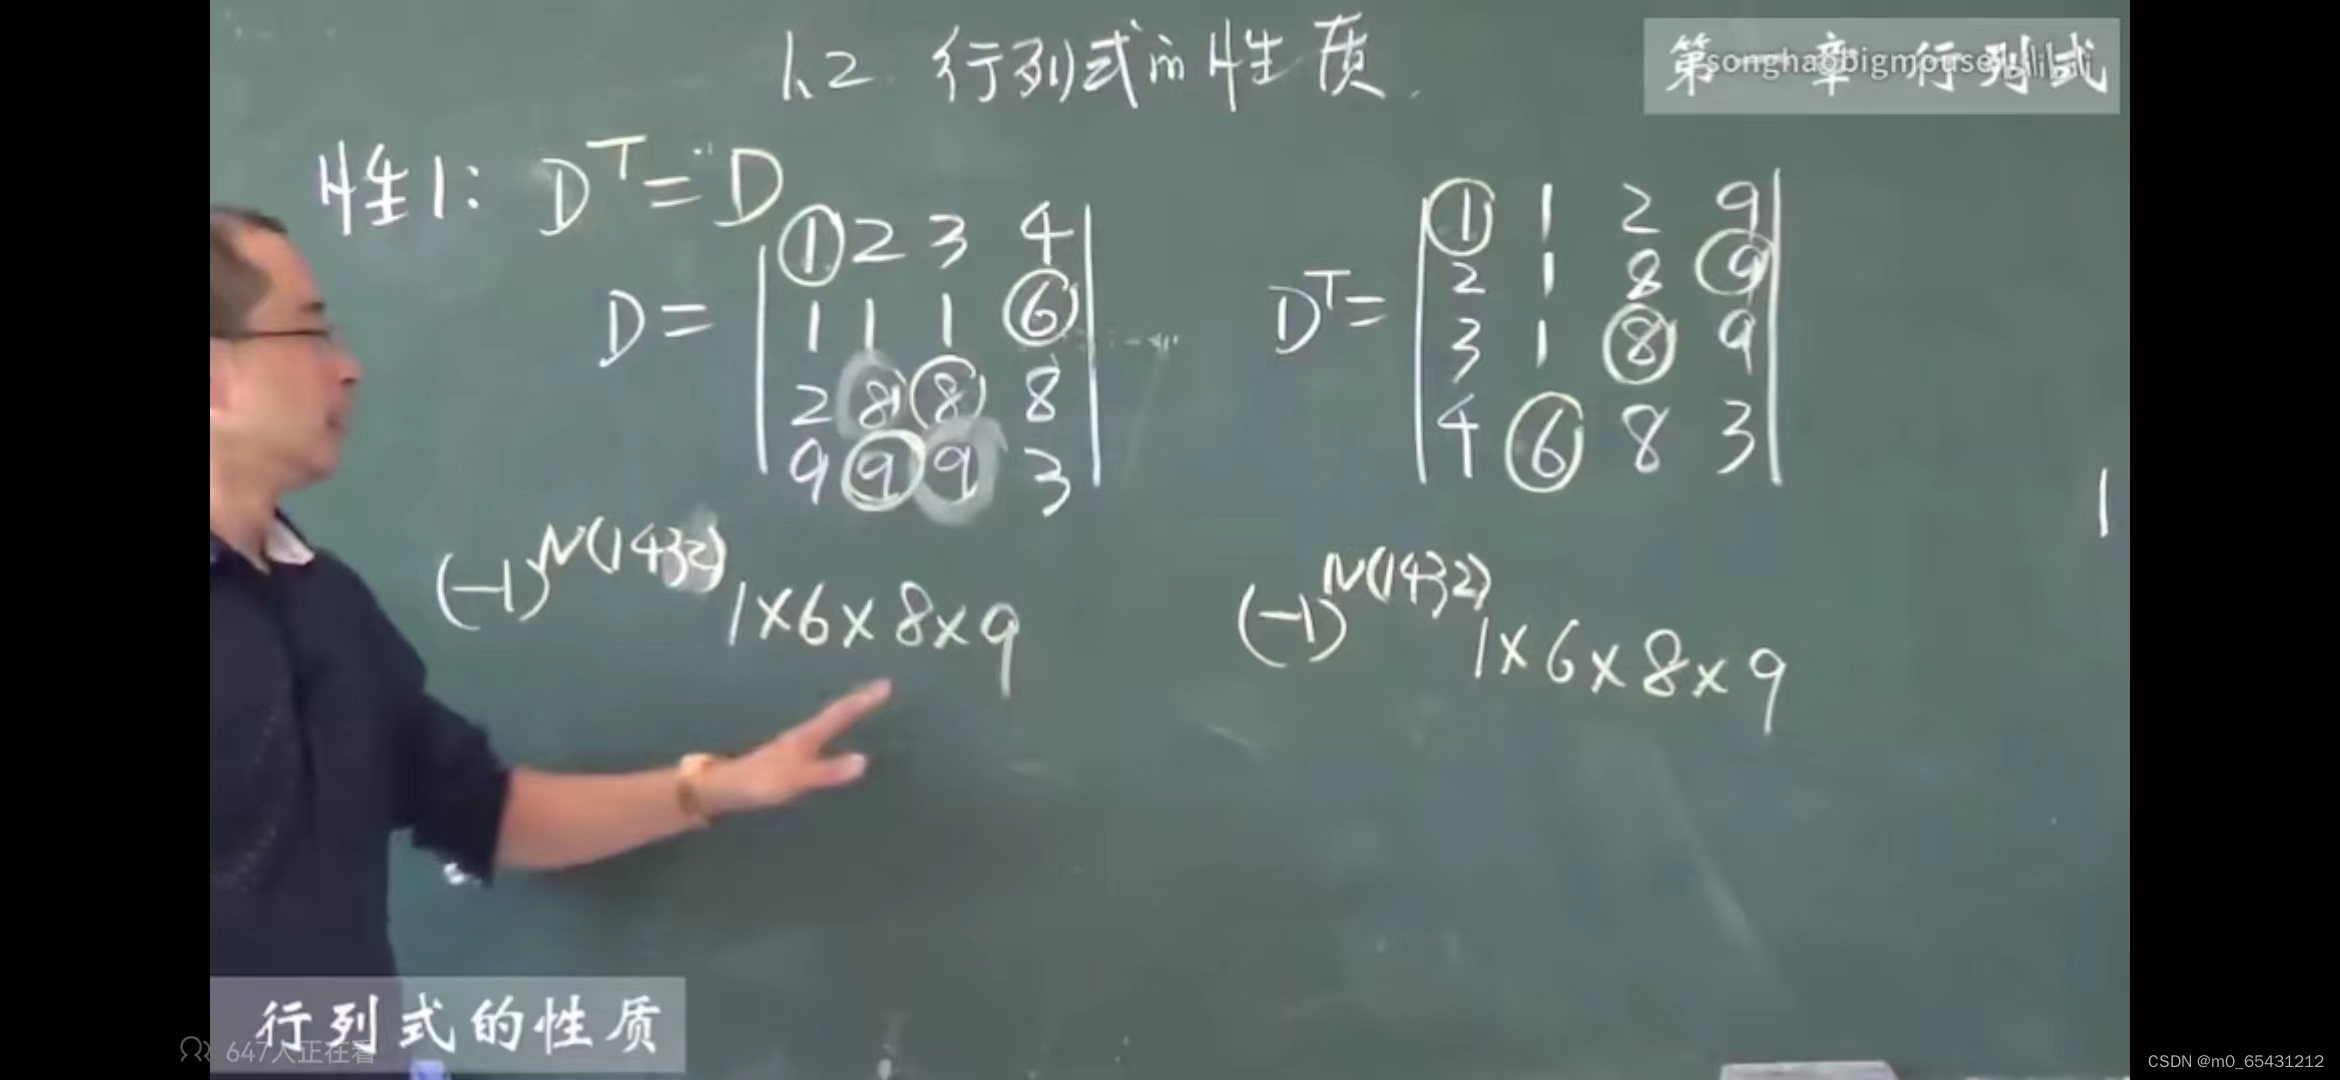 1.2 行列式的性质.
第一章 行列式
songhaobigmouse
bilibili
性1: Dᵀ = D
D =
1 2 3 4
1 1 1 6
2 8 8 8
9 9 9 3
Dᵀ =
1 1 2 9
2 1 8 9
3 1 8 9
4 6 8 3
1
(-1)^N(1432) 1×6×8×9
(-1)^N(1432) 1×6×8×9
行列式的性质
647人正在看
CSDN @m0_65431212